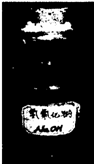 氢氧化钠
NaOH